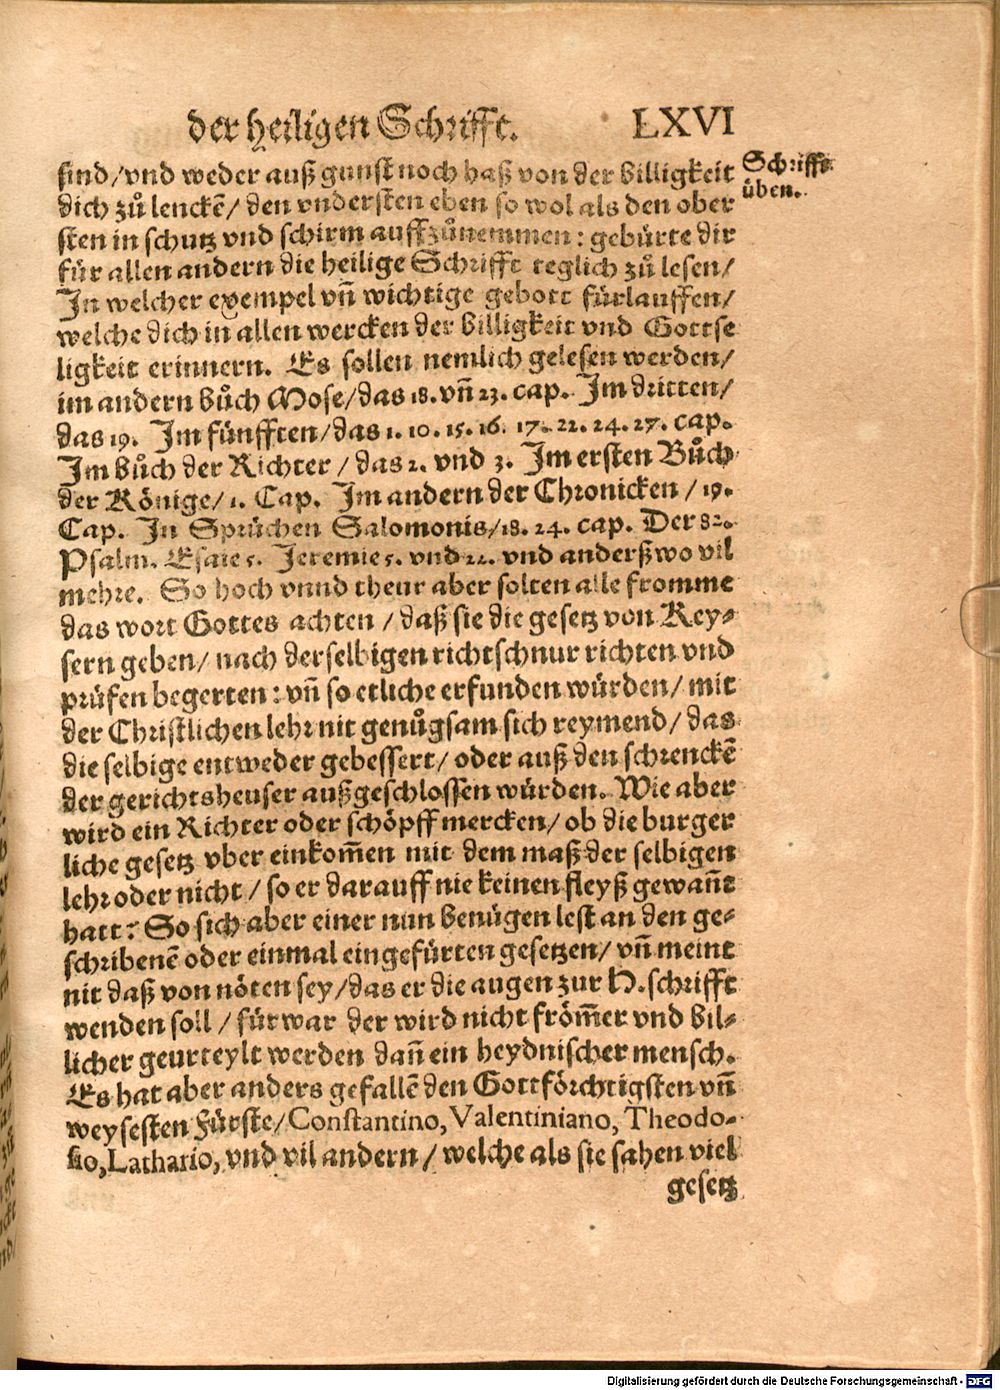 der heiligen Schrifft. LXVI
sind/vnd weder auß gunst noch haß von der billigkeit
Schrifft
üben.
dich zů lenckē/ den vndersten eben so wol als den ober
sten in schutz vnd schirm auffzůnemmen: gebürte dir
für allen andern die heilige Schrifft teglich zů lesen/
In welcher exempel vñ wichtige gebott fürlauffen/
welche dich in allen wercken der billigkeit vnd Gottse
ligkeit erinnern. Es sollen nemlich gelesen werden/
im andern bůch Mose/das 18. vñ 23. cap. Im dritten/
das 19. Im fünfften/das 1. 10. 15. 16. 17. 22. 24. 27. cap.
Im bůch der Richter/das 2. vnd 3. Im ersten Bůch
der Könige/ 1. Cap. Im andern der Chronicken/ 19.
Cap. In Sprüchen Salomonis/18. 24. cap. Der 82.
Psalm. Esaie 5. Jeremie 5. vnd 22. vnd anderßwo vil
mehre. So hoch vnnd theur aber solten alle fromme
das wort Gottes achten/daß sie die gesetz von Key-
sern geben/nach derselbigen richtschnur richten vnd
prüfen begerten: vñ so etliche erfunden würden/mit
der Christlichen lehr nit genůgsam sich reymend/das
die selbige entweder gebessert/oder auß den schrenckē
der gerichtsheuser außgeschlossen würden. Wie aber
wird ein Richter oder schöpff mercken/ob die burger
liche gesetz vber einkom̃en mit dem maß der selbigen
lehr oder nicht/so er darauff nie keinen fleyß gewañt
hatt? So sich aber einer nun benügen lest an den ge-
schribenē oder einmal eingefürten gesetzen/vñ meint
nit daß von nöten sey/das er die augen zur H. schrifft
wenden soll/fürwar der wird nicht fröm̃er vnd bil-
licher geurteylt werden dañ ein heydnischer mensch.
Es hat aber anders gefallē den Gottförchtigsten vñ
weysesten Fürstē/Constantino, Valentiniano, Theodo-
sio, Lathario, vnd vil andern/welche als sie sahen viel
gesetz
Digitalisierung gefördert durch die Deutsche Forschungsgemeinschaft - DFG